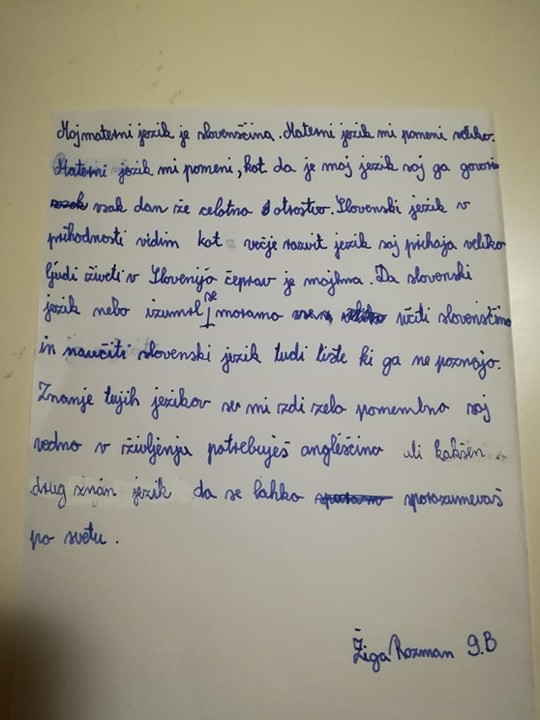 Moj materni jezik je slovenščina. Materni jezik mi pomeni veliko.
Materni jezik mi pomeni, kot da je moj jezik saj ga govorim
vsak dan že celotno otroštvo. Slovenski jezik v
prihodnosti vidim kot večje razvit jezik saj prihaja veliko
ljudi živeti v Slovenijo čeprav je majhna. Da slovenski
jezik nebo izumrl se moramo učiti slovenščino
in naučiti slovenski jezik tudi tiste ki ga ne poznajo.
Znanje tujih jezikov se mi zdi zelo pomembno saj
vedno v življenju potrebuješ angleščino ali kakšen
drug znan jezik da se lahko sporazumevaš
po svetu.
Žiga Rozman 9.B